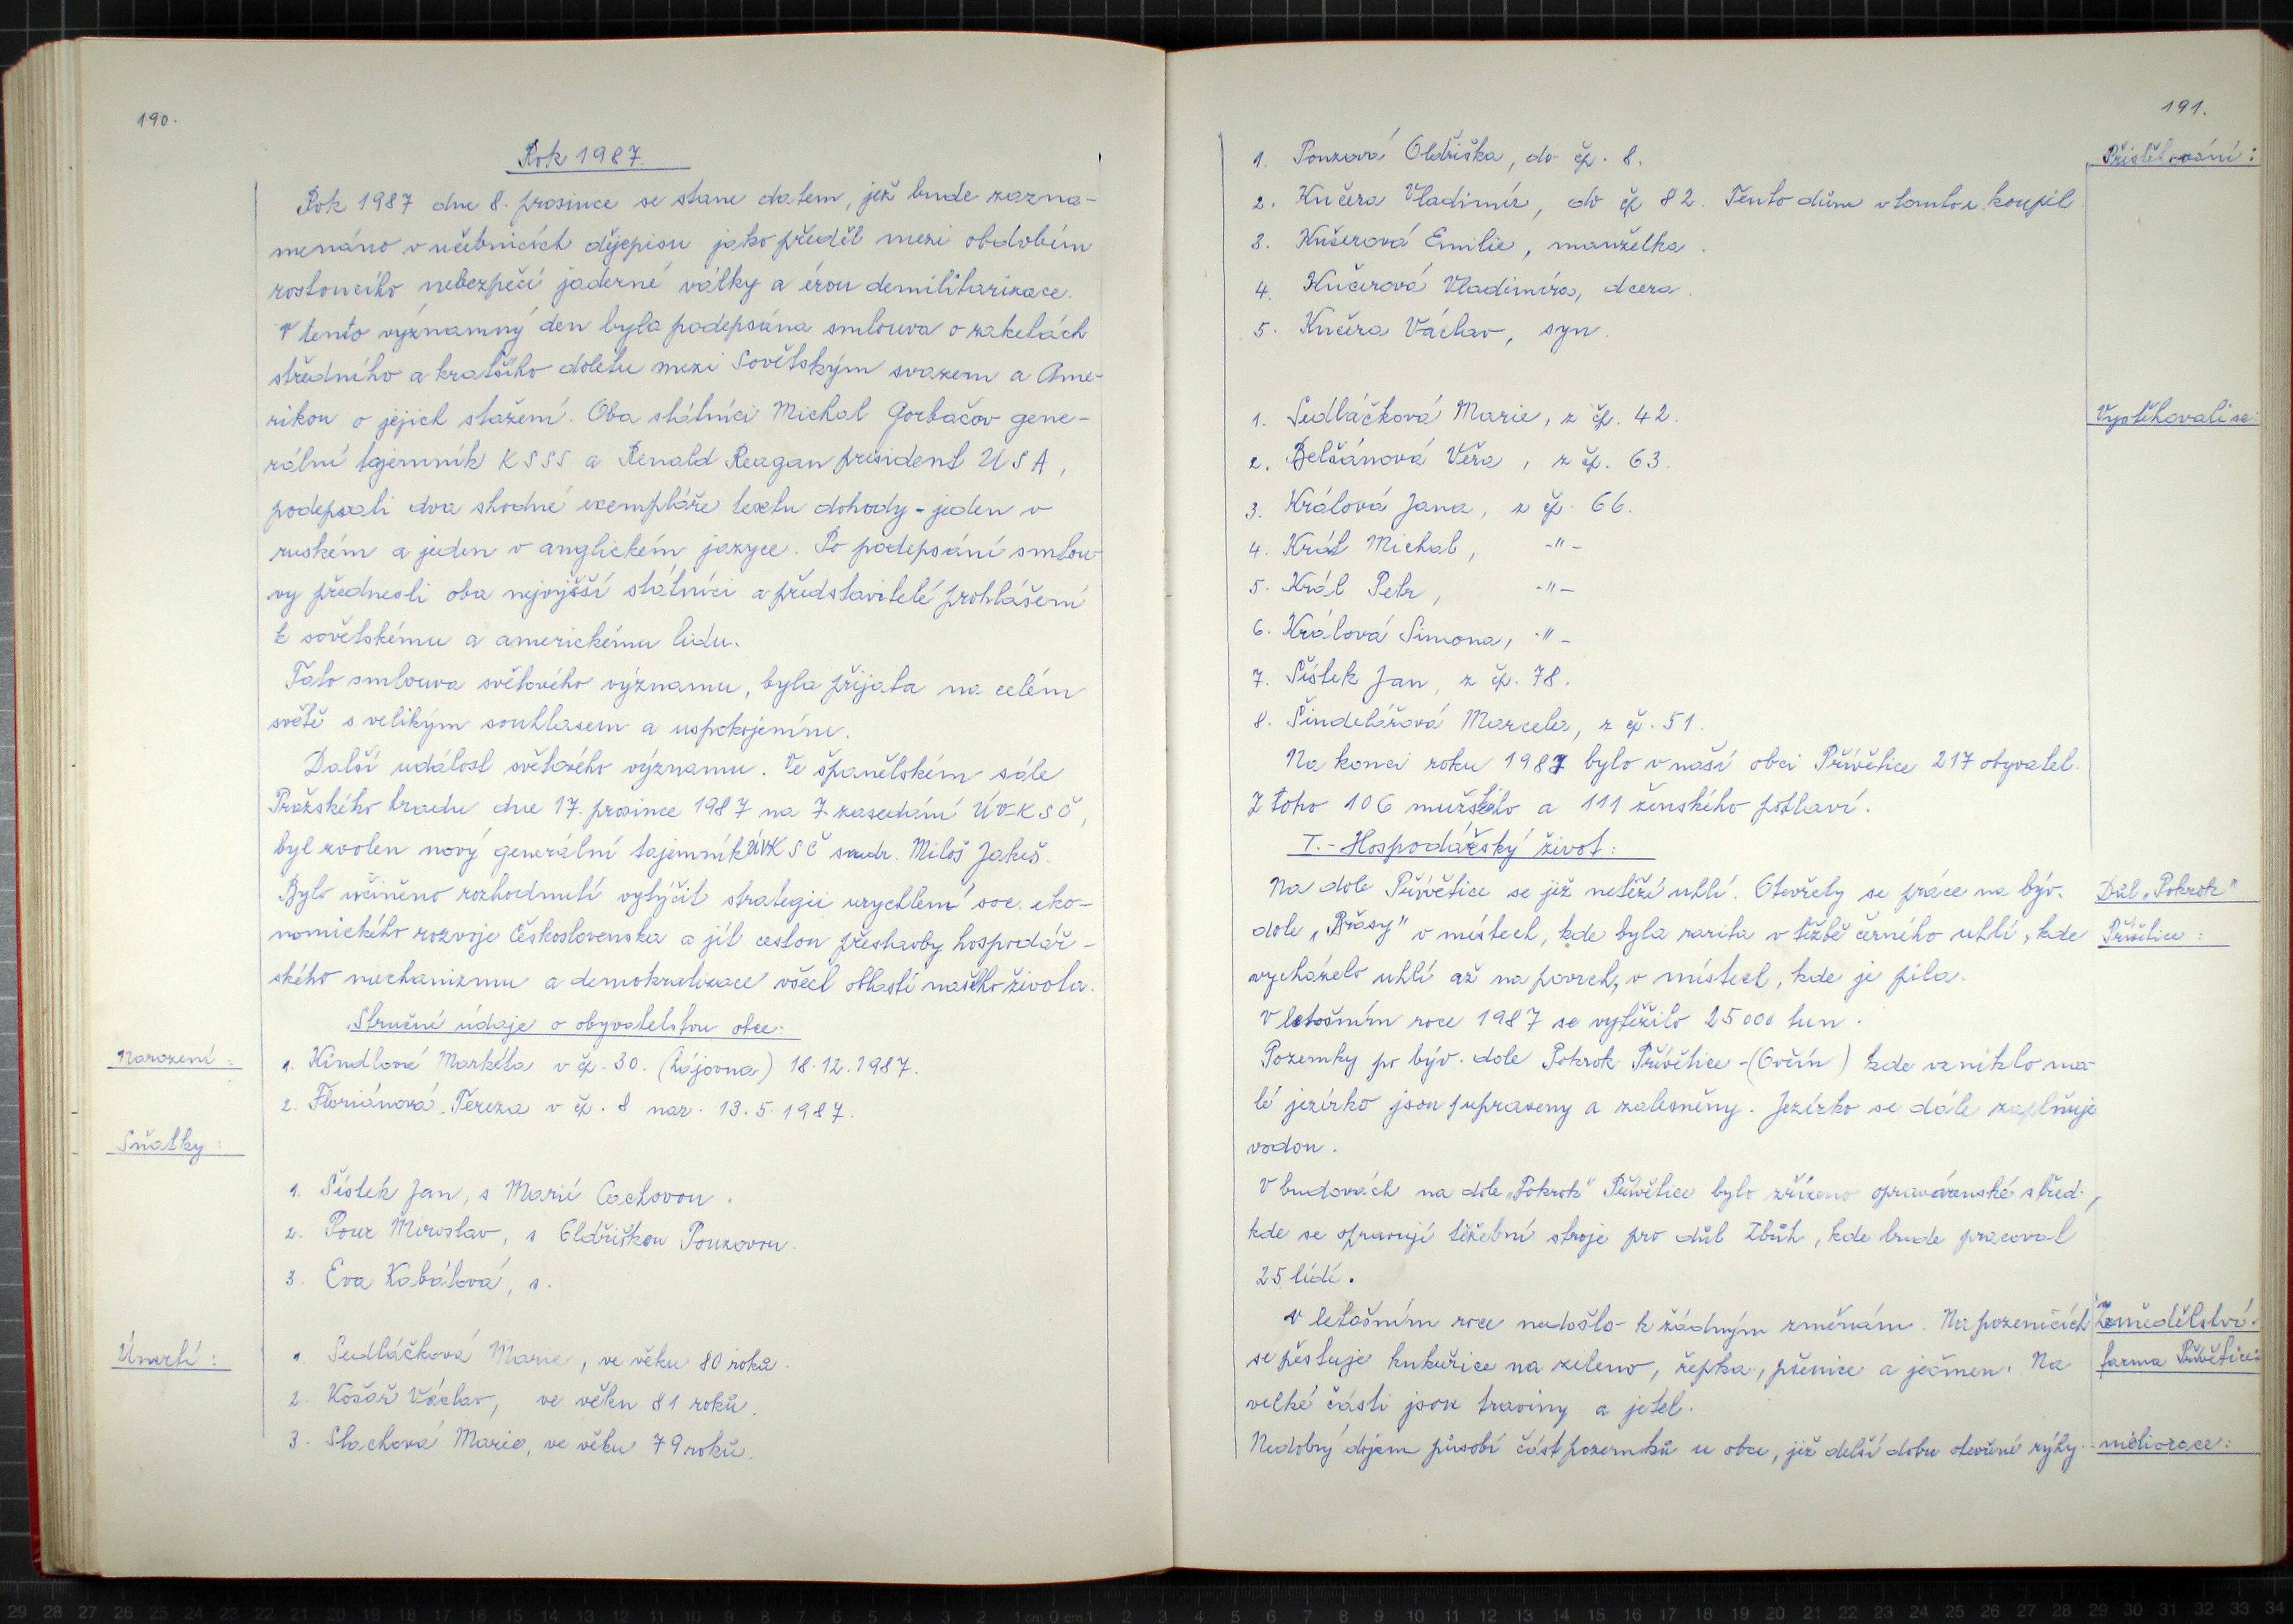 190.
Rok 1987.
Rok 1987 dne 8. prosince se stane datem, jež bude zazna-
menáno v učebnicích dějepisu jako předěl mezi obdobím
rostoucího nebezpečí jaderné války a érou demilitarizace.
V tento významný den byla podepsána smlouva o raketách
středního a kratšího doletu mezi Sovětským svazem a Ame-
rikou o jejich stažení. Oba státníci Michal Gorbačov gene-
rální tajemník KSSS a Renald Reagan president USA,
podepsali dva shodné exempláře textu dohody - jeden v
ruském a jeden v anglickém jazyce. Po podepsání smlou-
vy přednesli oba nejvyšší státníci a představitelé prohlášení
k sovětskému a americkému lidu.
Tato smlouva světového významu, byla přijata na celém
světě s velikým souhlasem a uspokojením.
Další událost světového významu. Ve španělském sále
Pražského hradu dne 17. prosince 1987 na 7. zasedání ÚV-KSČ,
byl zvolen nový generální tajemník ÚVKSČ soudr. Miloš Jakeš.
Bylo učiněno rozhodnutí vytýčit strategii urychlení soc. eko-
nomického rozvoje Československa a jít cestou přestavby hospodář-
ského mechanizmu a demokratizace všech oblastí našeho života.
Stručné údaje o obyvatelstvu obce:
Narození:
1. Kindlová Markéta v čp. 30. (Hájovna) 18.12.1987.
2. Floriánová Tereza v čp. 8 nar. 13.5.1987.
Sňatky:
1. Šístek Jan, s Marií Cachovou.
2. Pour Miroslav, s Oldřiškou Pouzovou.
3. Eva Kabátová, s.
Úmrtí:
1. Sedláčková Marie, ve věku 80 roků.
2. Košař Václav, ve věku 81 roků.
3. Stachová Marie, ve věku 79 roků.
191.
Přistěhování:
1. Pouzová Oldřiška, do čp. 8.
2. Kučera Vladimír, do čp 82. Tento dům v tomto r. koupil
3. Kučerová Emilie, manželka.
4. Kučerová Vladimíra, dcera.
5. Kučera Václav, syn.
Vystěhovali se:
1. Sedláčková Marie, z čp. 42.
2. Belšánová Věra, z čp. 63.
3. Králová Jana, z čp. 66.
4. Král Michal, -"-
5. Král Petr, -"-
6. Králová Simona, -"-
7. Šístek Jan, z čp. 78.
8. Šindelářová Marcela, z čp. 51.
Na konci roku 1987 bylo v naší obci Přívětice 217 obyvatel.
Z toho 106 mužského a 111 ženského pohlaví.
I. - Hospodářský život:
Na dole Přívětice se již netěží uhlí. Otevřely se práce na býv.
Důl „Pokrok"
dole „Břasy" v místech, kde byla rarita v těžbě černého uhlí, kde
Přívětice:
vycházelo uhlí až na povrch, v místech, kde je pila.
V letošním roce 1987 se vytěžilo 25 000 tun.
Pozemky po býv. dole Pokrok Přívětice - (Ovčín) kde vzniklo ma-
lé jezírko jsou upraveny a zalesněny. Jezírko se dále zaplňuje
vodou.
V budovách na dole „Pokrok" Přívětice bylo zřízeno opravárenské střed.,
kde se opravují těžební stroje pro důl Zbůh, kde bude pracovat
25 lidí.
V letošním roce nedošlo k žádným změnám. Na pozemcích
Zemědělství.
se pěstuje kukuřice na zeleno, řepka, pšenice a ječmen. Na
farma Přívětice:
velké části jsou traviny a jetel.
Nedobrý dojem působí část pozemků u obce, již delší dobu otevřené rýhy
meliorace: